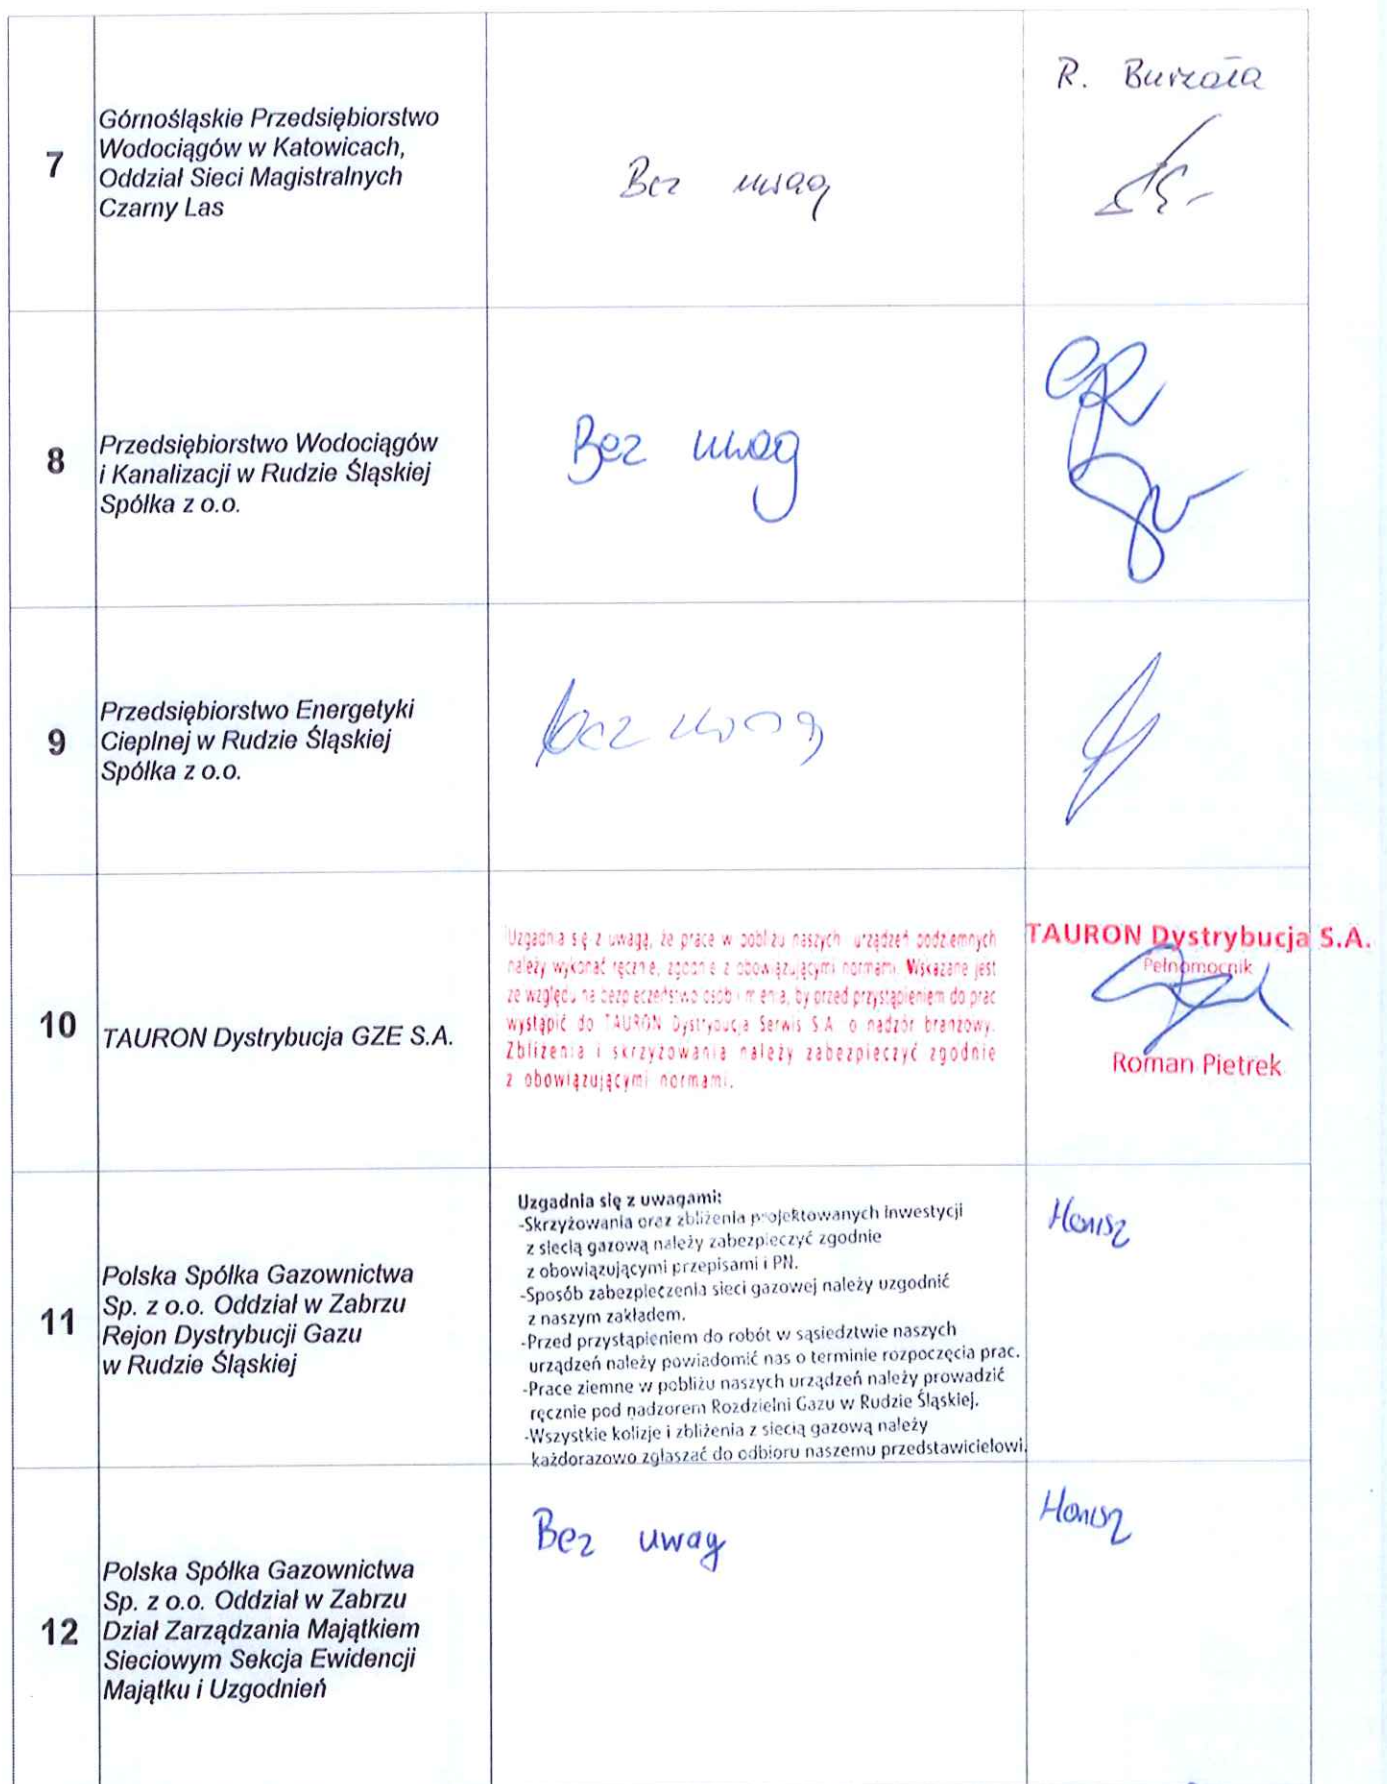 7
Górnośląskie Przedsiębiorstwo
Wodociągów w Katowicach,
Oddział Sieci Magistralnych
Czarny Las
Bez uwag
R.
8
Przedsiębiorstwo Wodociągów
i Kanalizacji w Rudzie Śląskiej
Spółka z o.o.
Bez uwag
9
Przedsiębiorstwo Energetyki
Cieplnej w Rudzie Śląskiej
Spółka z o.o.
bez uwag
10
TAURON Dystrybucja GZE S.A.
Uzgadnia się z uwagą, że prace w pobliżu naszych urządzeń podziemnych
należy wykonać ręcznie, zgodnie z obowiązującymi normami. Wskazane jest
ze względu na bezpieczeństwo osób i mienia, by przed przystąpieniem do prac
wystąpić do TAURON Dystrybucja Serwis S.A. o nadzór branżowy.
Zbliżenia i skrzyżowania należy zabezpieczyć zgodnie
z obowiązującymi normami.
TAURON Dystrybucja S.A.
Pełnomocnik
Roman Pietrek
11
Polska Spółka Gazownictwa
Sp. z o.o. Oddział w Zabrzu
Rejon Dystrybucji Gazu
w Rudzie Śląskiej
Uzgadnia się z uwagami:
-Skrzyżowania oraz zbliżenia projektowanych inwestycji
z siecią gazową należy zabezpieczyć zgodnie
z obowiązującymi przepisami i PN.
-Sposób zabezpieczenia sieci gazowej należy uzgodnić
z naszym zakładem.
-Przed przystąpieniem do robót w sąsiedztwie naszych
urządzeń należy powiadomić nas o terminie rozpoczęcia prac.
-Prace ziemne w pobliżu naszych urządzeń należy prowadzić
ręcznie pod nadzorem Rozdzielni Gazu w Rudzie Śląskiej.
-Wszystkie kolizje i zbliżenia z siecią gazową należy
każdorazowo zgłaszać do odbioru naszemu przedstawicielowi.
Honisz
12
Polska Spółka Gazownictwa
Sp. z o.o. Oddział w Zabrzu
Dział Zarządzania Majątkiem
Sieciowym Sekcja Ewidencji
Majątku i Uzgodnień
Bez uwag
Honisz